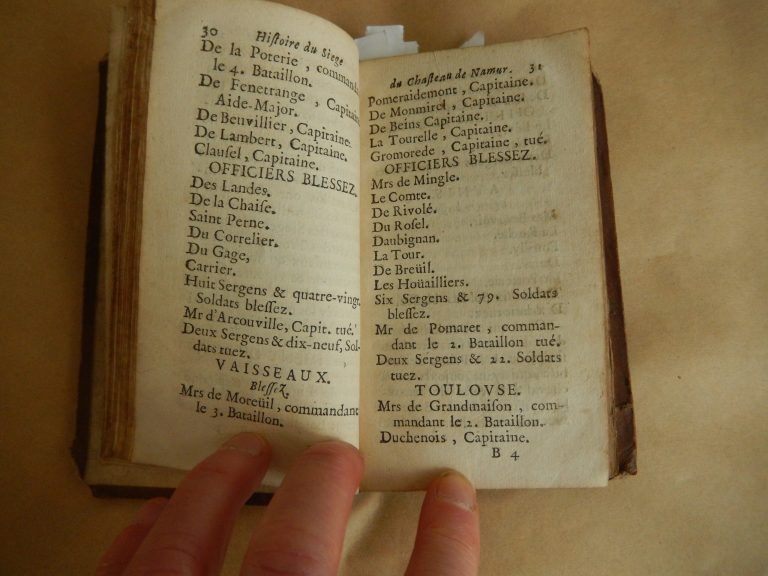 30 Histoire du Siege
De la Poterie, commandant
le 4. Bataillon.
De Fenetrange, Capitaine
Aide-Major.
De Beuvillier, Capitaine.
De Lambert, Capitaine.
Clausel, Capitaine.
OFFICIERS BLESSEZ.
Des Landes.
De la Chaise.
Saint Perne.
Du Correlier.
Du Gage,
Carrier.
Huit Sergens & quatre-vingt
Soldats blessez.
Mr d'Arcouville, Capit. tué.
Deux Sergens & dix-neuf, Sol-
dats tuez.
VAISSEAUX.
Blessez.
Mrs de Moreüil, commandant
le 3. Bataillon.
du Chasteau de Namur. 31
Pomeraidemont, Capitaine.
De Monmirel, Capitaine.
De Beins Capitaine.
La Tourelle, Capitaine.
Gromorede, Capitaine, tué.
OFFICIERS BLESSEZ.
Mrs de Mingle.
Le Comte.
De Rivolé.
Du Rosel.
Daubignan.
La Tour.
De Breüil.
Les Hoüailliers.
Six Sergens & 79. Soldats
blessez.
Mr de Pomaret, comman-
dant le 2. Bataillon tué.
Deux Sergens & 22. Soldats
tuez.
TOULOVSE.
Mrs de Grandmaison, com-
mandant le 2. Bataillon.
Duchenois, Capitaine.
B 4